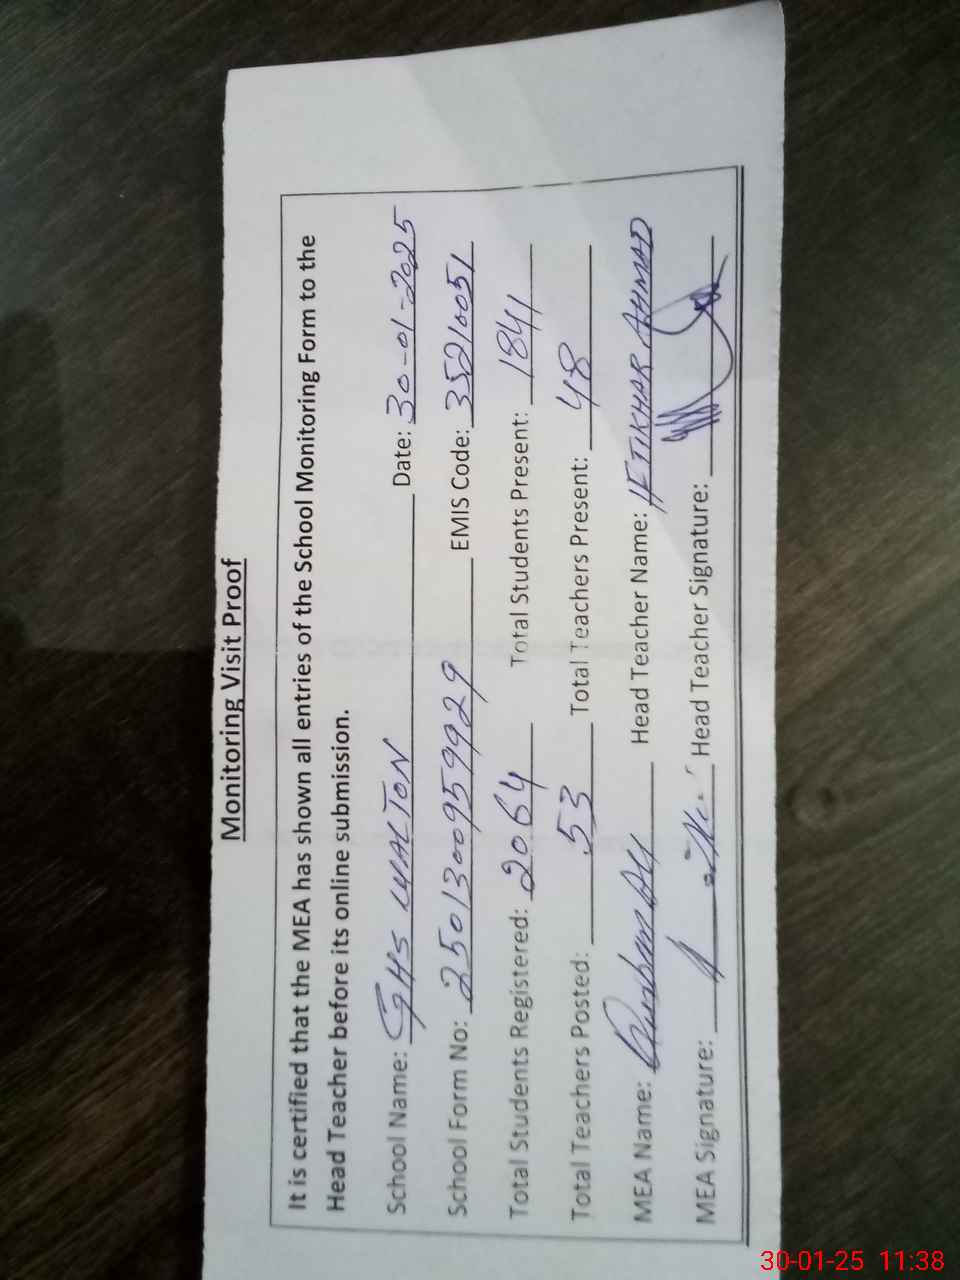 Monitoring Visit Proof
It is certified that the MEA has shown all entries of the School Monitoring Form to the
Head Teacher before its online submission.
School Name: GHS WALTON Date: 30-01-2025
School Form No: 2501300959929 EMIS Code: 35210051
Total Students Registered: 2064 Total Students Present: 1841
Total Teachers Posted: 53 Total Teachers Present: 48
MEA Name: Qurban Ali Head Teacher Name: IFTIKHAR AHMAD
MEA Signature: Head Teacher Signature:
30-01-25 11:38